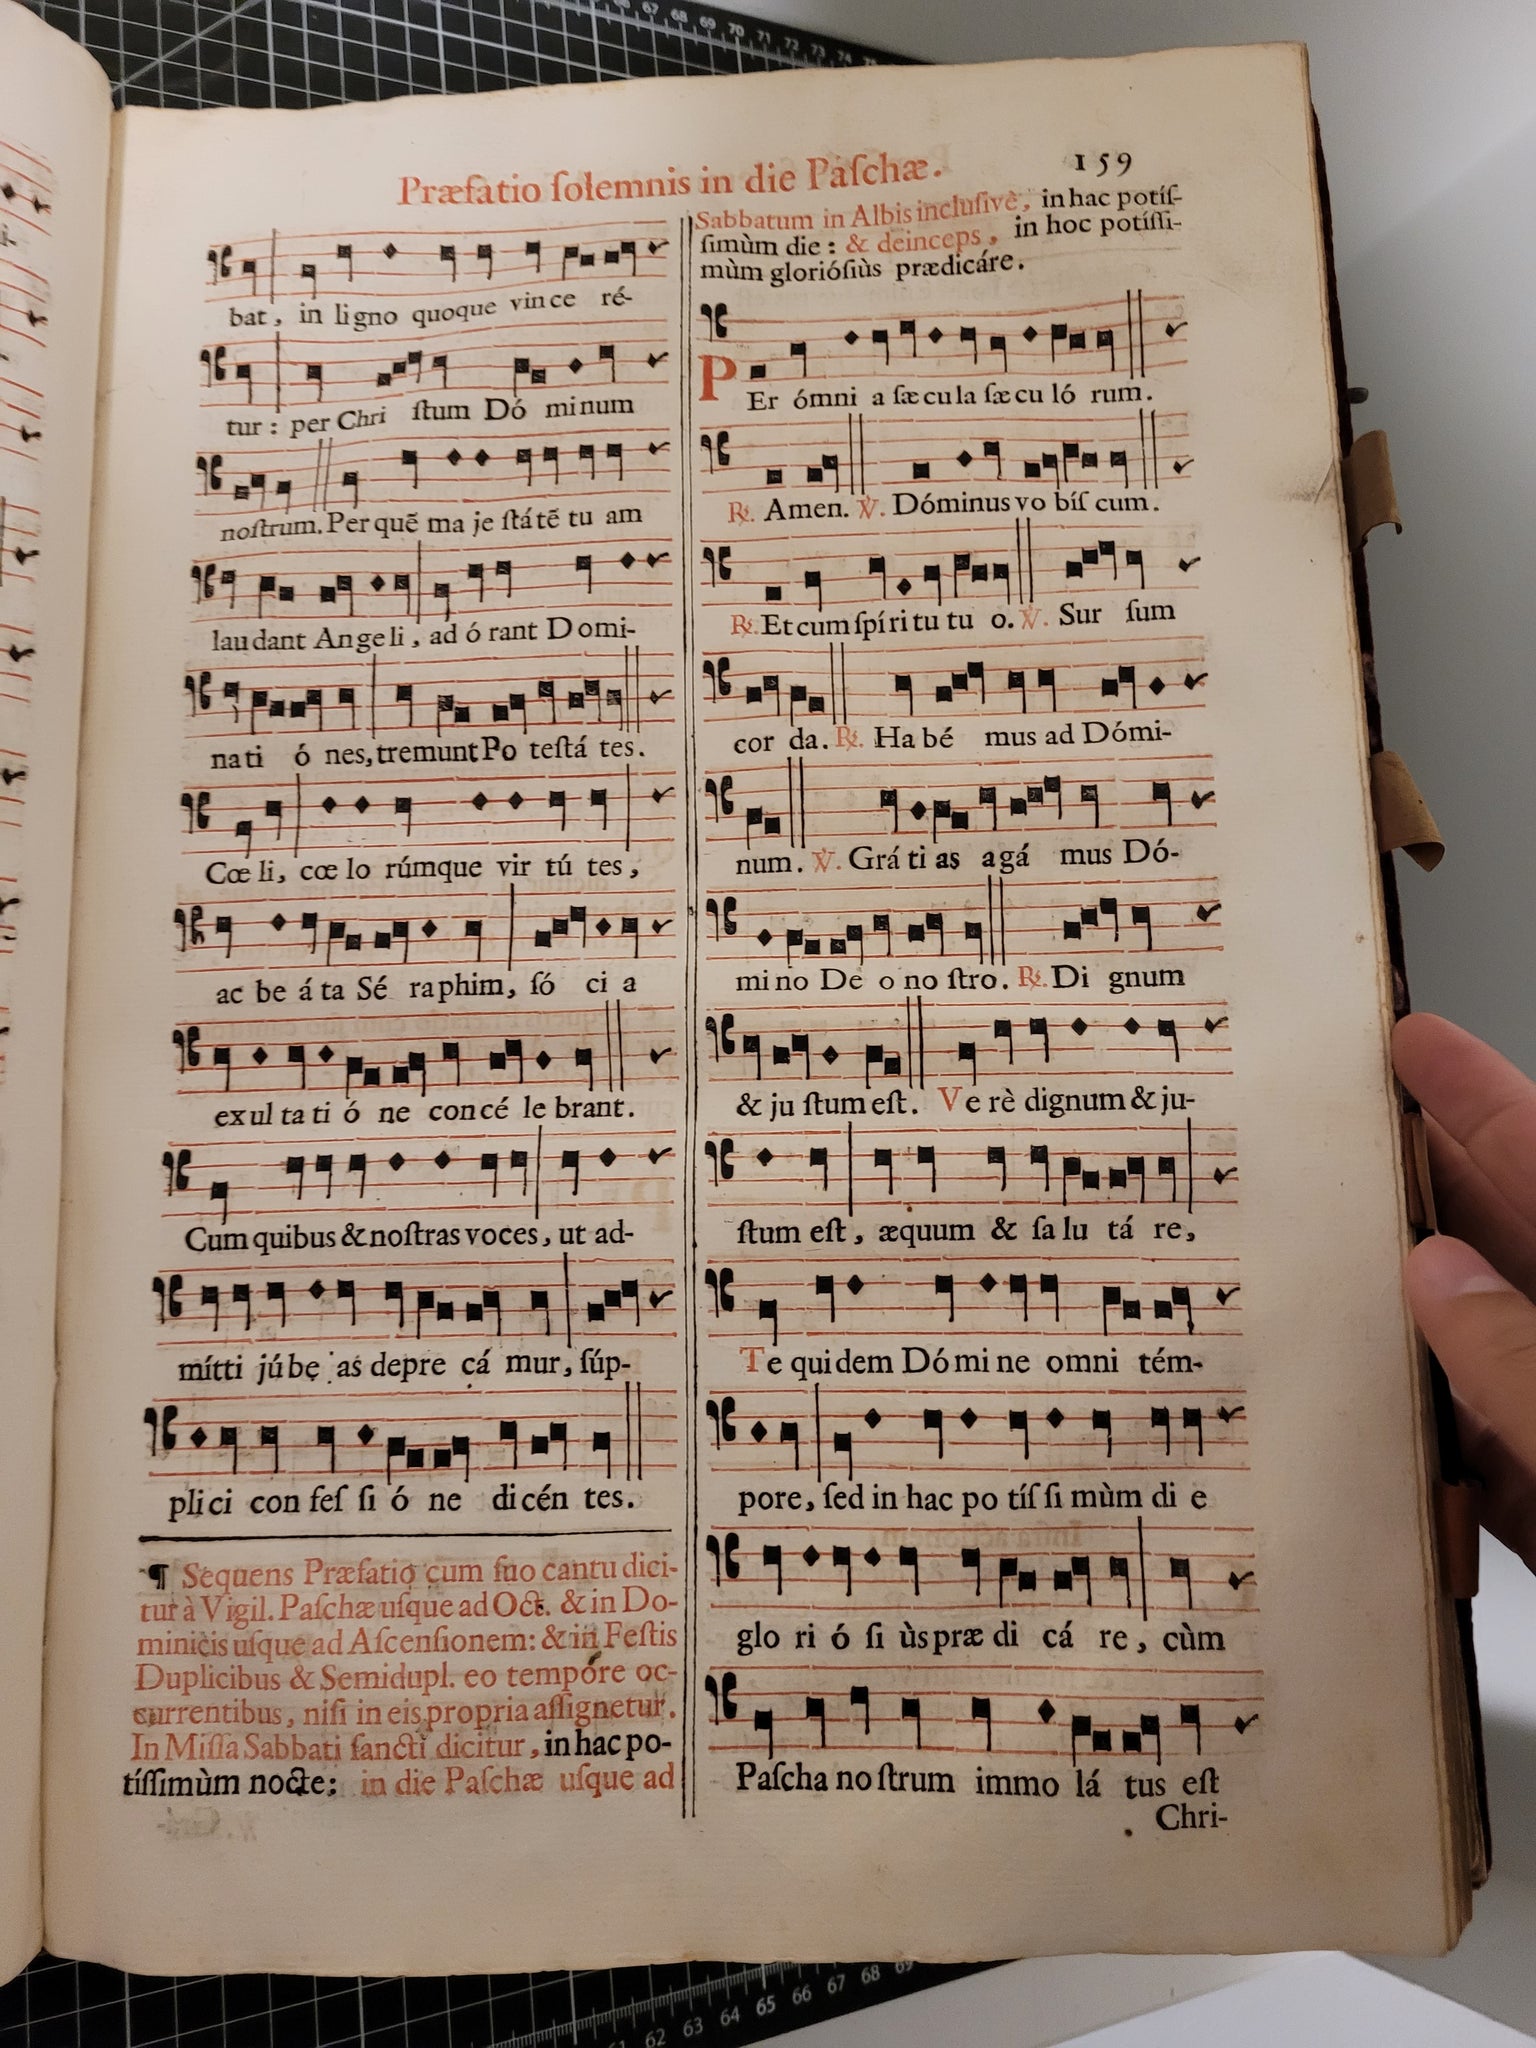 Præfatio ſolemnis in die Paſchæ. 159
bat, in ligno quoque vince ré-
tur: per Chri ſtum Dó minum
noſtrum. Per quē ma je ſtátē tu am
lau dant Angeli, ad ó rant Domi-
nati ó nes, tremunt Po teſtá tes.
Cœ li, cœ lo rúmque vir tú tes,
ac be á ta Sé raphim, ſó ci a
exul ta ti ó ne concé le brant.
Cum quibus & noſtras voces, ut ad-
mítti júbe as depre cá mur, ſúp-
plici con feſ ſi ó ne dicén tes.
¶ Sequens Præfatio cum ſuo cantu dici-
tur à Vigil. Paſchæ uſque ad Oct. & in Do-
minicis uſque ad Aſcenſionem: & in Feſtis
Duplicibus & Semidupl. eo tempóre oc-
currentibus, niſi in eis propria aſſignetur.
In Miſſa Sabbati ſancti dicitur, in hac po-
tíſſimùm nocte: in die Paſchæ uſque ad
Sabbatum in Albis incluſivè, in hac potíſ-
ſimùm die: & deinceps, in hoc potíſſi-
mùm glorióſiùs prædicáre.
PEr ómni a ſæ cula ſæ cu ló rum.
℟. Amen. ℣. Dóminus vo biſ cum.
℟. Et cum ſpíri tu tu o. ℣. Sur ſum
cor da. ℟. Ha bé mus ad Dómi-
num. ℣. Grá ti as agá mus Dó-
mi no De o no ſtro. ℟. Di gnum
& ju ſtum eſt. Ve rè dignum & ju-
ſtum eſt, æquum & ſa lu tá re,
Te quidem Dómi ne omni tém-
pore, ſed in hac po tíſ ſi mùm di e
glo ri ó ſi ùs præ di cá re, cùm
Paſcha no ſtrum immo lá tus eſt
Chri-
66 67 68 69 70 71 72 73 74 75
61 62 63 64 65 66 67 68 69